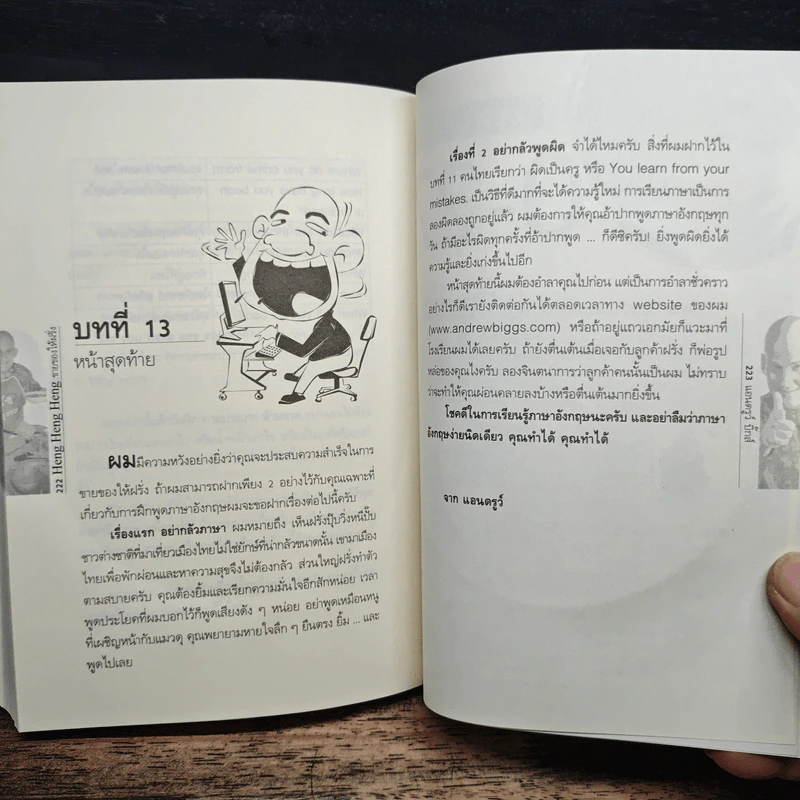 บทที่ 13
หน้าสุดท้าย
ผมมีความหวังอย่างยิ่งว่าคุณจะประสบความสำเร็จในการ
ขายของให้ฝรั่ง ถ้าผมสามารถฝากเพียง 2 อย่างไว้กับคุณเฉพาะที่
เกี่ยวกับการฝึกพูดภาษาอังกฤษผมจะขอฝากเรื่องต่อไปนี้ครับ
เรื่องแรก อย่ากลัวภาษา ผมหมายถึง เห็นฝรั่งปุ๊บวิ่งหนีปั๊บ
ชาวต่างชาติที่มาเที่ยวเมืองไทยไม่ใช่ยักษ์ที่น่ากลัวขนาดนั้น เขามาเมือง
ไทยเพื่อพักผ่อนและหาความสุขจึงไม่ต้องกลัว ส่วนใหญ่ฝรั่งทำตัว
ตามสบายครับ คุณต้องยิ้มและเรียกความมั่นใจอีกสักหน่อย เวลา
พูดประโยคที่ผมบอกไว้ก็พูดเสียงดัง ๆ หน่อย อย่าพูดเหมือนหนู
ที่เผชิญหน้ากับแมวดุ คุณพยายามหายใจลึก ๆ ยืนตรง ยิ้ม ... และ
พูดไปเลย
222 Heng Heng Heng ขายของให้ฝรั่ง
เรื่องที่ 2 อย่ากลัวพูดผิด จำได้ไหมครับ สิ่งที่ผมฝากไว้ใน
บทที่ 11 คนไทยเรียกว่า ผิดเป็นครู หรือ You learn from your
mistakes. เป็นวิธีที่ดีมากที่จะได้ความรู้ใหม่ การเรียนภาษาเป็นการ
ลองผิดลองถูกอยู่แล้ว ผมต้องการให้คุณอ้าปากพูดภาษาอังกฤษทุก
วัน ถ้ามีอะไรผิดทุกครั้งที่อ้าปากพูด ... ก็ดีซิครับ! ยิ่งพูดผิดยิ่งได้
ความรู้และยิ่งเก่งขึ้นไปอีก
หน้าสุดท้ายนี้ผมต้องอำลาคุณไปก่อน แต่เป็นการอำลาชั่วคราว
อย่างไรก็ดีเรายังติดต่อกันได้ตลอดเวลาทาง website ของผม
(www.andrewbiggs.com) หรือถ้าอยู่แถวเอกมัยก็แวะมาที่
โรงเรียนผมได้เลยครับ ถ้ายังตื่นเต้นเมื่อเจอกับลูกค้าฝรั่ง ก็พ่อรูป
หล่อของคุณไงครับ ลองจินตนาการว่าลูกค้าคนนั้นเป็นผม ไม่ทราบ
ว่าจะทำให้คุณผ่อนคลายลงบ้างหรือตื่นเต้นมากยิ่งขึ้น
โชคดีในการเรียนรู้ภาษาอังกฤษนะครับ และอย่าลืมว่าภาษา
อังกฤษง่ายนิดเดียว คุณทำได้ คุณทำได้
จาก แอนดรูว์
223 แอนดรูว์ บิ๊กส์